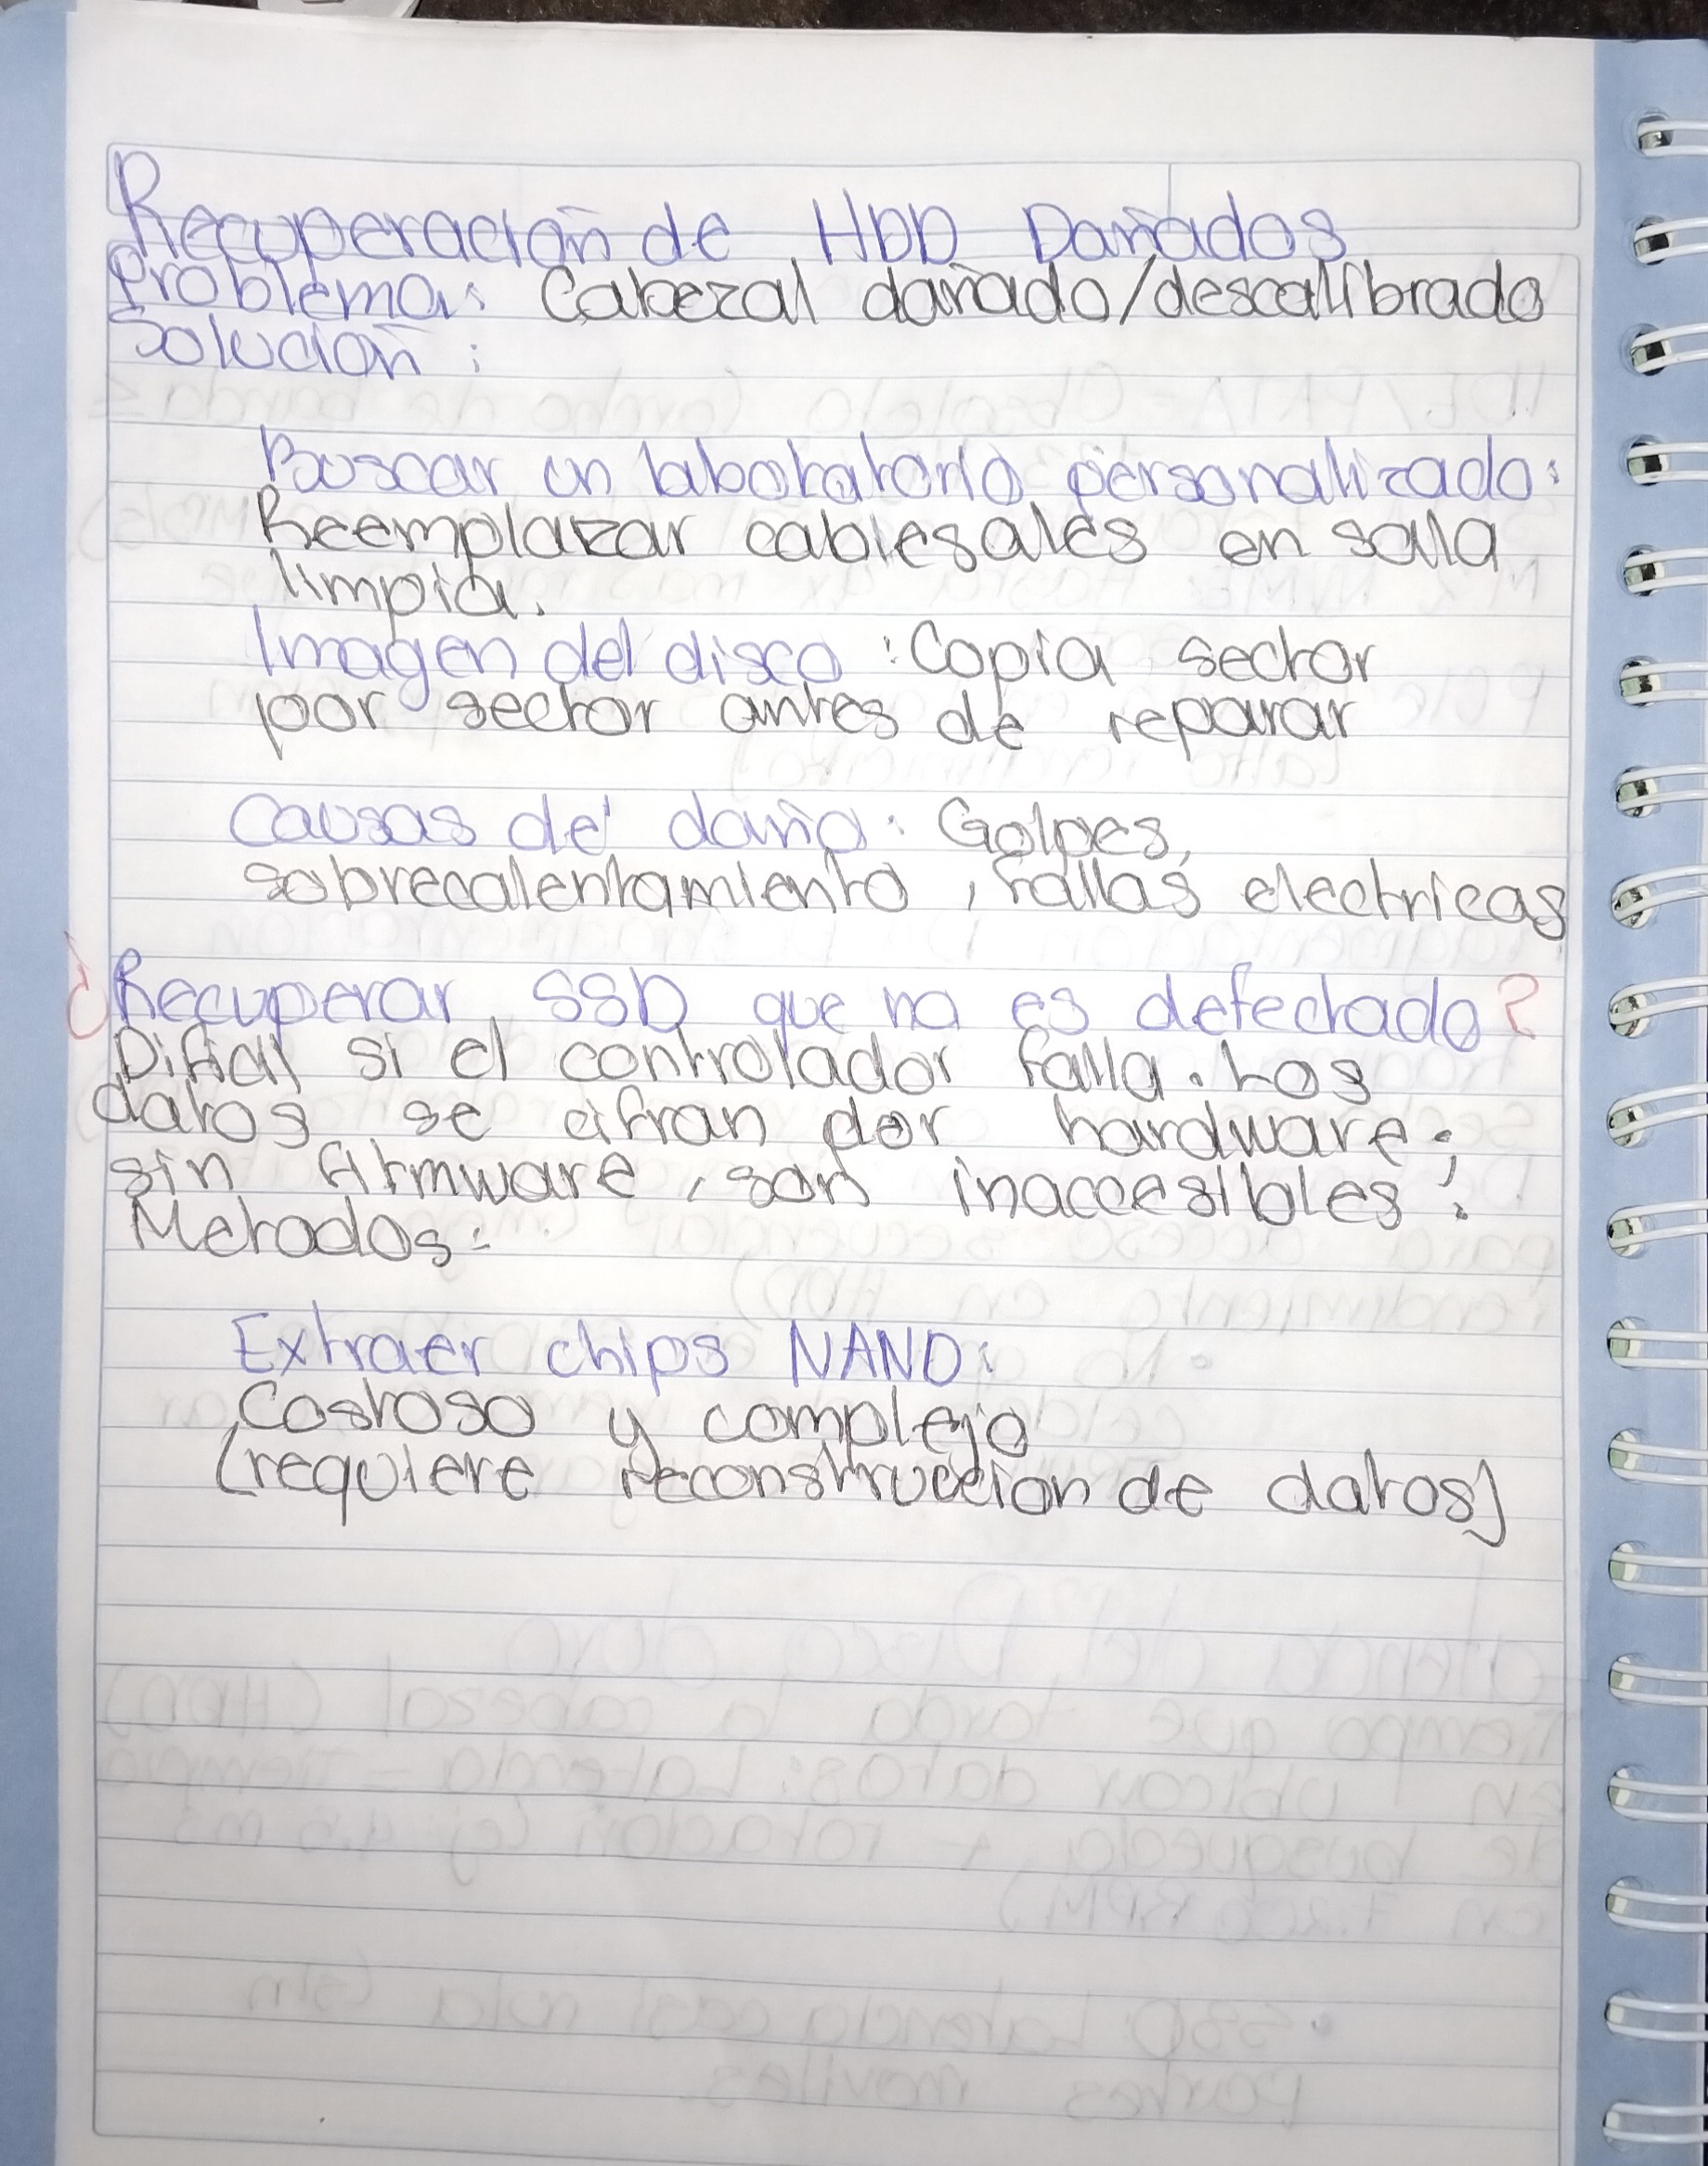 Recuperación de HDD Dañados
Problema: Cabezal dañado/descalibrado
Solución:
Buscar un laboratorio personalizado:
Reemplazar cabiesales en sala
limpia.
Imagen del disco: Copia sector
por sector antes de reparar
Causas de daño: Golpes,
sobrecalentamiento, fallas electricas
¿Recuperar SSD que no es defectado?
Dificil si el controlador falla. Los
datos se cifran por hardware;
sin firmware, son inaccesibles:
Metodos:
Extraer chips NAND:
Costoso y complejo
(requiere reconstruccion de datos)